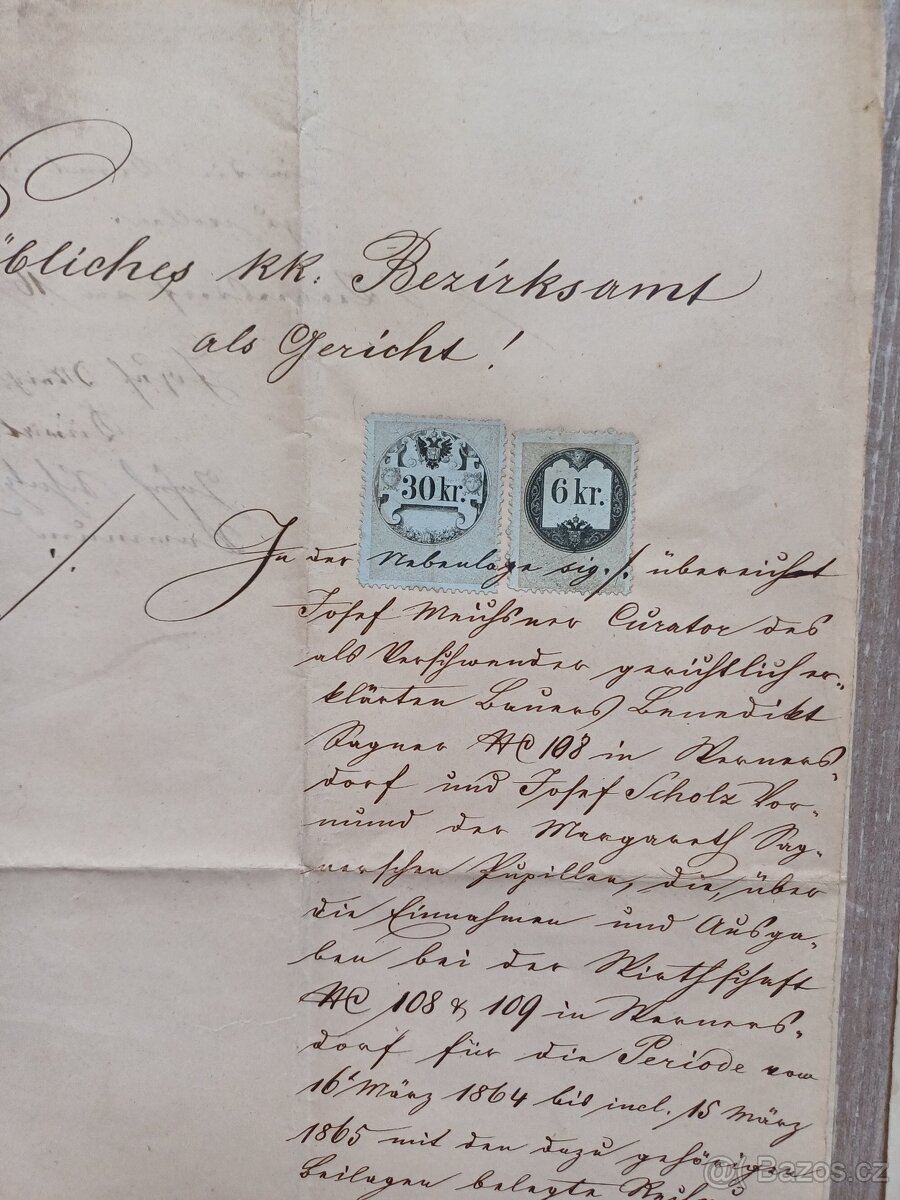 öbliches kk: Bezirksamt
als Gericht!
30 kr.
6 kr.
./.
In der Nebenlage sig. ./. überreicht
Josef Meichsner Curator des
als Verschwender gerichtlich er-
klärten Bauers Benedikt
Sagner NC 108 in Werners-
dorf und Josef Scholz Vor-
mund der Margareth Sag-
nerschen Pupillen, die, über
die Einnahmen und Ausga-
ben bei der Wirthschaft
NC 108 & 109 in Werners-
dorf für die Periode vom
16t März 1864 bis incl. 15 März
1865 mit den dazu gehörigen
Beilagen belegte
Bazos.cz